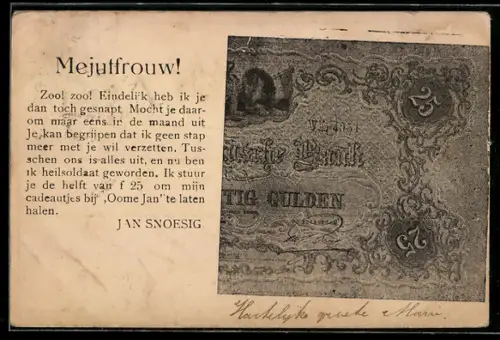 Mejutfrouw!
Zoo! zoo! Eindelijk heb ik je
dan toch gesnapt. Mocht je daar-
om maar eens in de maand uit
Je kan begrijpen dat ik geen stap
meer met je wil verzetten. Tus-
schen ons is alles uit, en nu ben
ik heilsoldaat geworden. Ik stuur
je de helft van f 25 om mijn
cadeautjes bij ,Oome Jan" te laten
halen.
JAN SNOESIG
25
sche Bank
TIG GULDEN
25
Hartelijke groete Marie.